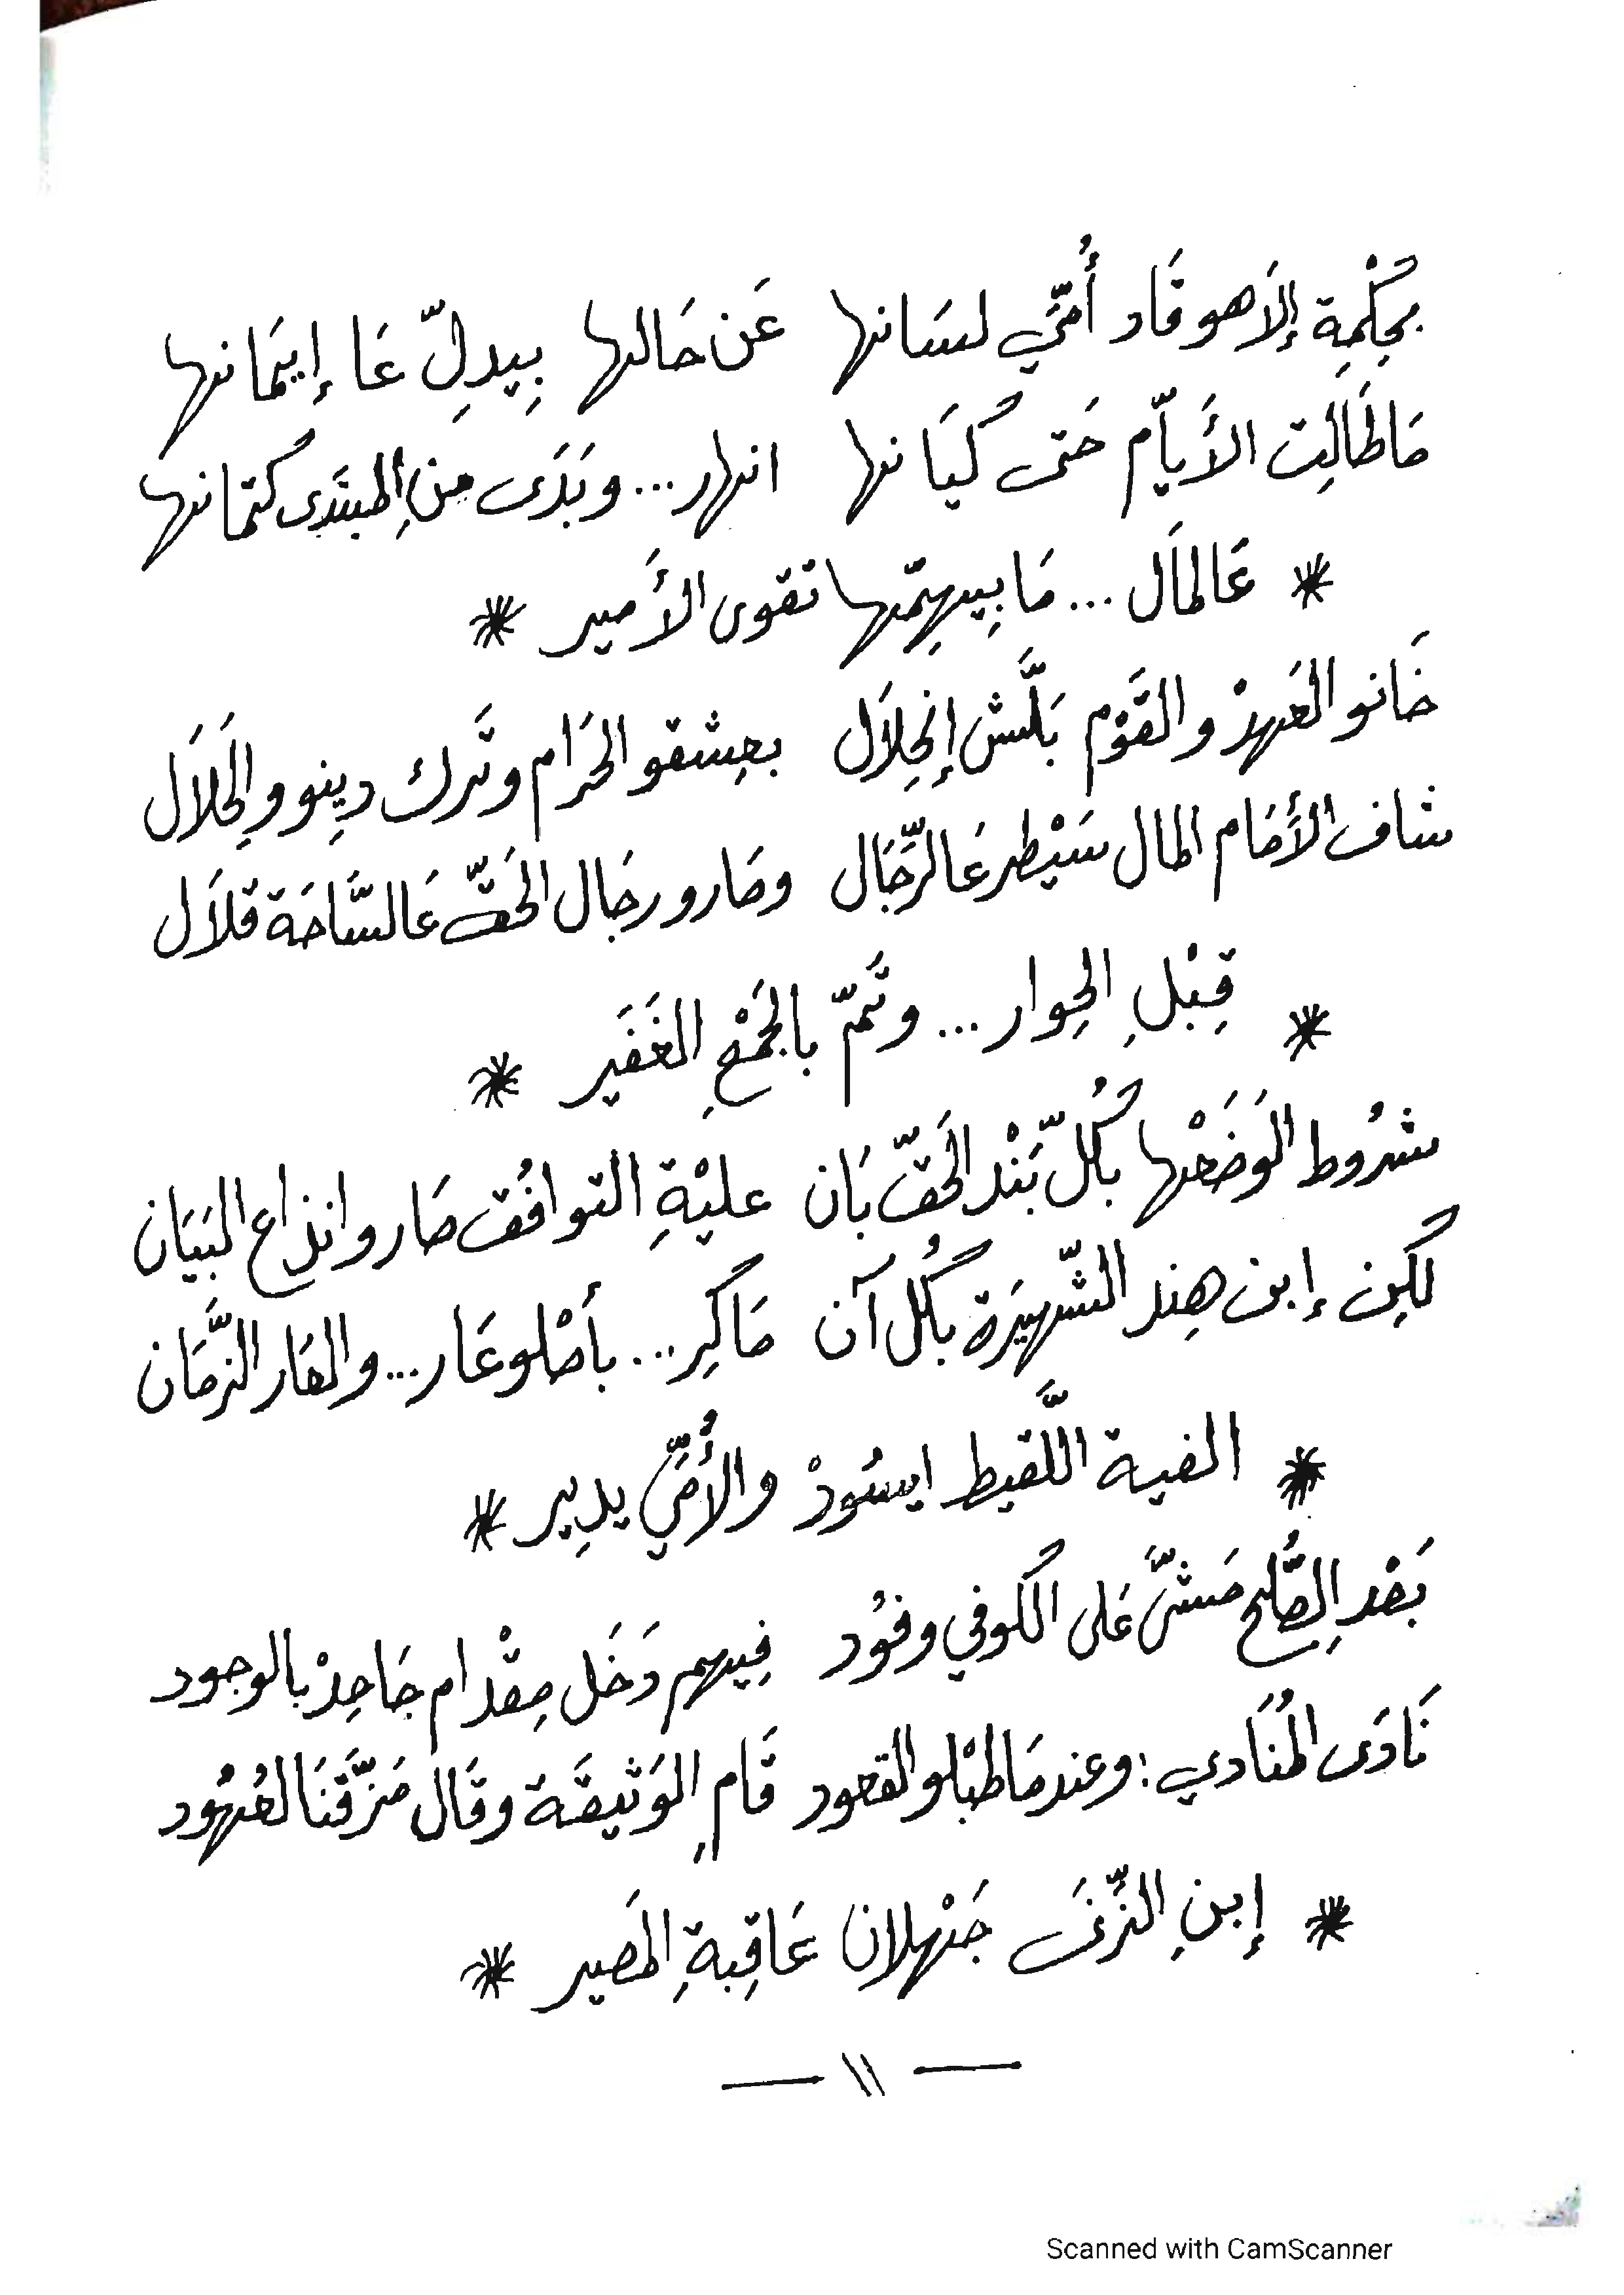 بحُكْمِة إلاَهو قَاد أُمّيَ لسَانها عَن حَالها بِيدلِّ عَا إيمَانها
مَا طَالِت الأَيّام حَتى كَيَانها انهار... وبَدَى مِنِ المبتَدى كتمانها
* عَالمَال ... مَا بِيهِمّها تقوى الأَمير *
خَانو العَهدْ والقَوْم بَلَّش إنحِلاَل بعِشقو الحَرَام وتَرك دينِو والحَلاَل
شاف الأمَام المال سَيْطر عَالرِّجَال وصَارو رجَال الحَقّ عَالسَّاحَة قلاَل
* قِبْلِ الحِوار ... وتَمّ بالجَمْعِ الغَفَير *
شرُوط الوَضَعْها بكُلّ بَنْد الحَقّ بَان عليْةِ التوافُق صَار وانذاع البَيَان
لكِن إبن هِند الشّهيَرة بكُل آن مَاكِر... بأصْلو عَار... والعَار الزّمَان
* الفية اللَّقيط ايسُودْ والأُمّيَ يدِير *
بَعْد الِصُّلح مَشّىَ عَلى الكوفي وفوُد فِيهم دَخَل مِقْدام جَاحِدْ بالوجود
نَادَى المُنَادي : وعند مَا طبْلو القعود قَامِ الوَثيقَة وقَال مَزّقنَا العُهُود
* إبنِ الزِّنىَ جَهْلان عَاقِبةِ المَصير *
— ١١ —
Scanned with CamScanner